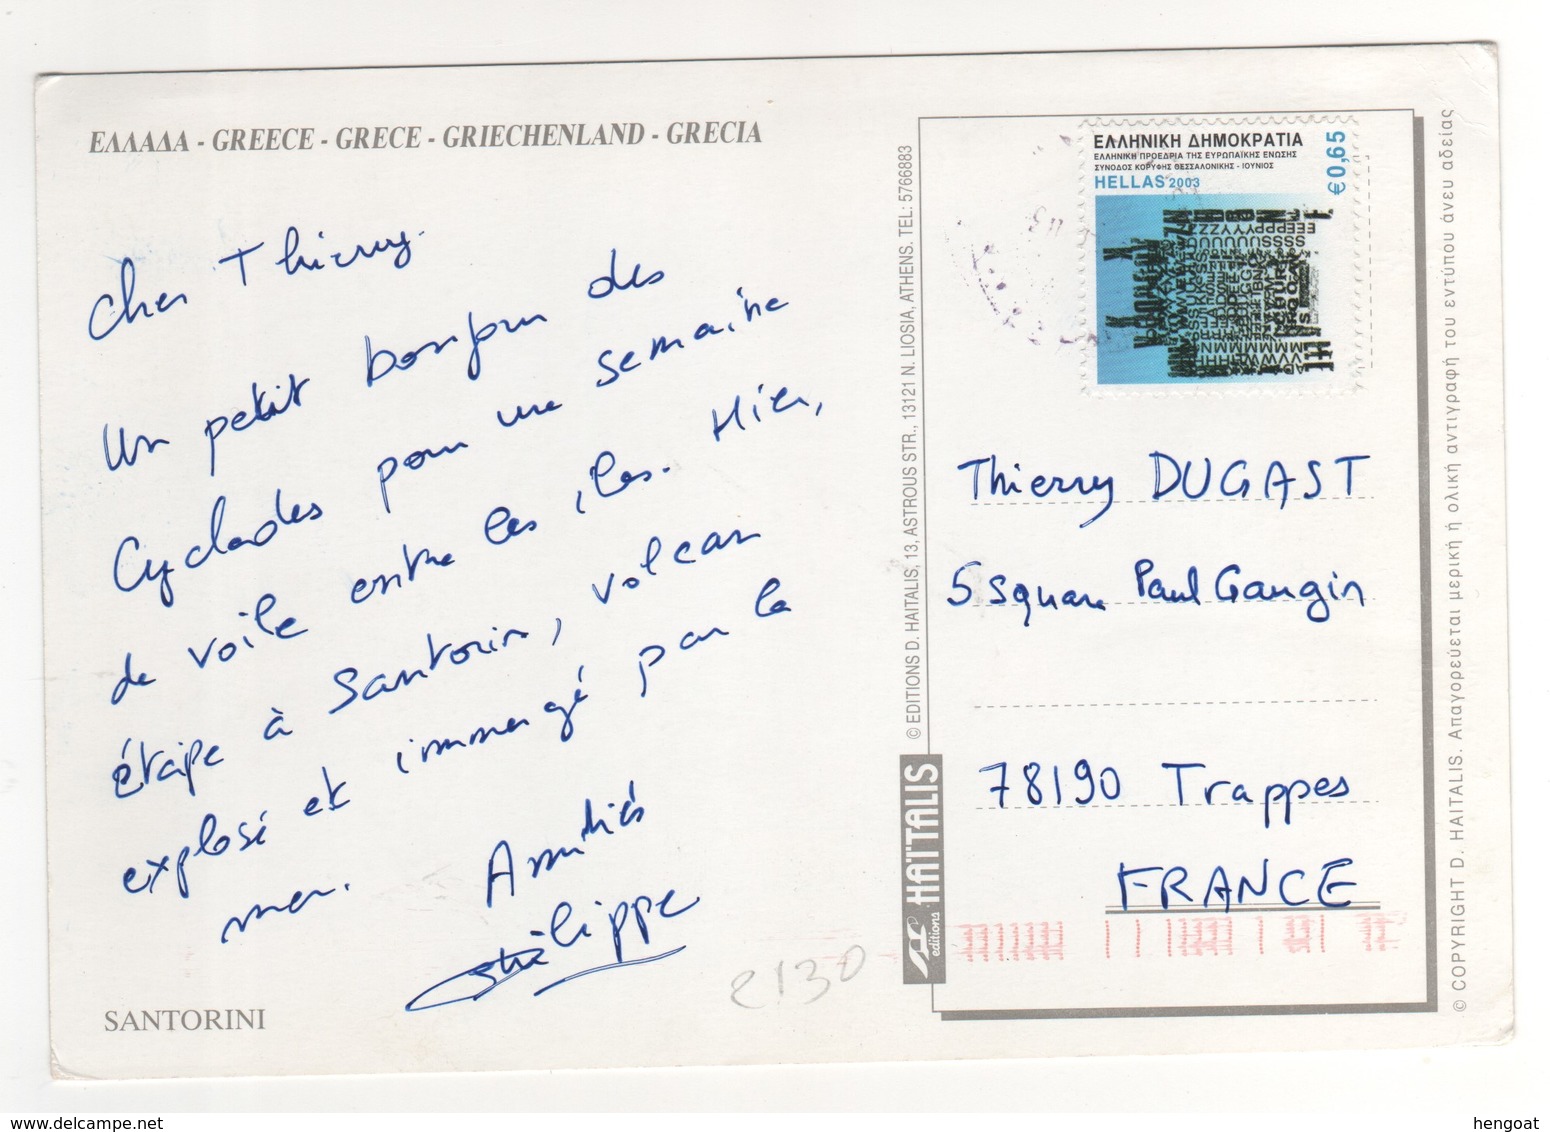 ΕΛΛΑΔΑ - GREECE - GRECE - GRIECHENLAND - GRECIA
Cher Thierry.
Un petit bonjour des
Cyclades pour une semaine
de voile entre les îles. Hier,
étape à Santorin, volcan
explosé et immergé par la
mer.
Amitiés
Philippe
SANTORINI
© EDITIONS D. HAITALIS, 13, ASTROUS STR., 13121 N. LIOSIA, ATHENS. TEL: 5766883
editions HAÏTALIS
ΕΛΛΗΝΙΚΗ ΔΗΜΟΚΡΑΤΙΑ
ΕΛΛΗΝΙΚΗ ΠΡΟΕΔΡΙΑ ΤΗΣ ΕΥΡΩΠΑΪΚΗΣ ΕΝΩΣΗΣ
ΣΥΝΟΔΟΣ ΚΟΡΥΦΗΣ ΘΕΣΣΑΛΟΝΙΚΗΣ - ΙΟΥΝΙΟΣ
HELLAS 2003
€0,65
Thierry DUGAST
5 square Paul Gaugin
78190 Trappes
FRANCE
2130
© COPYRIGHT D. HAITALIS. Απαγορεύεται μερική ή ολική αντιγραφή του εντύπου άνευ αδείας
hengoat